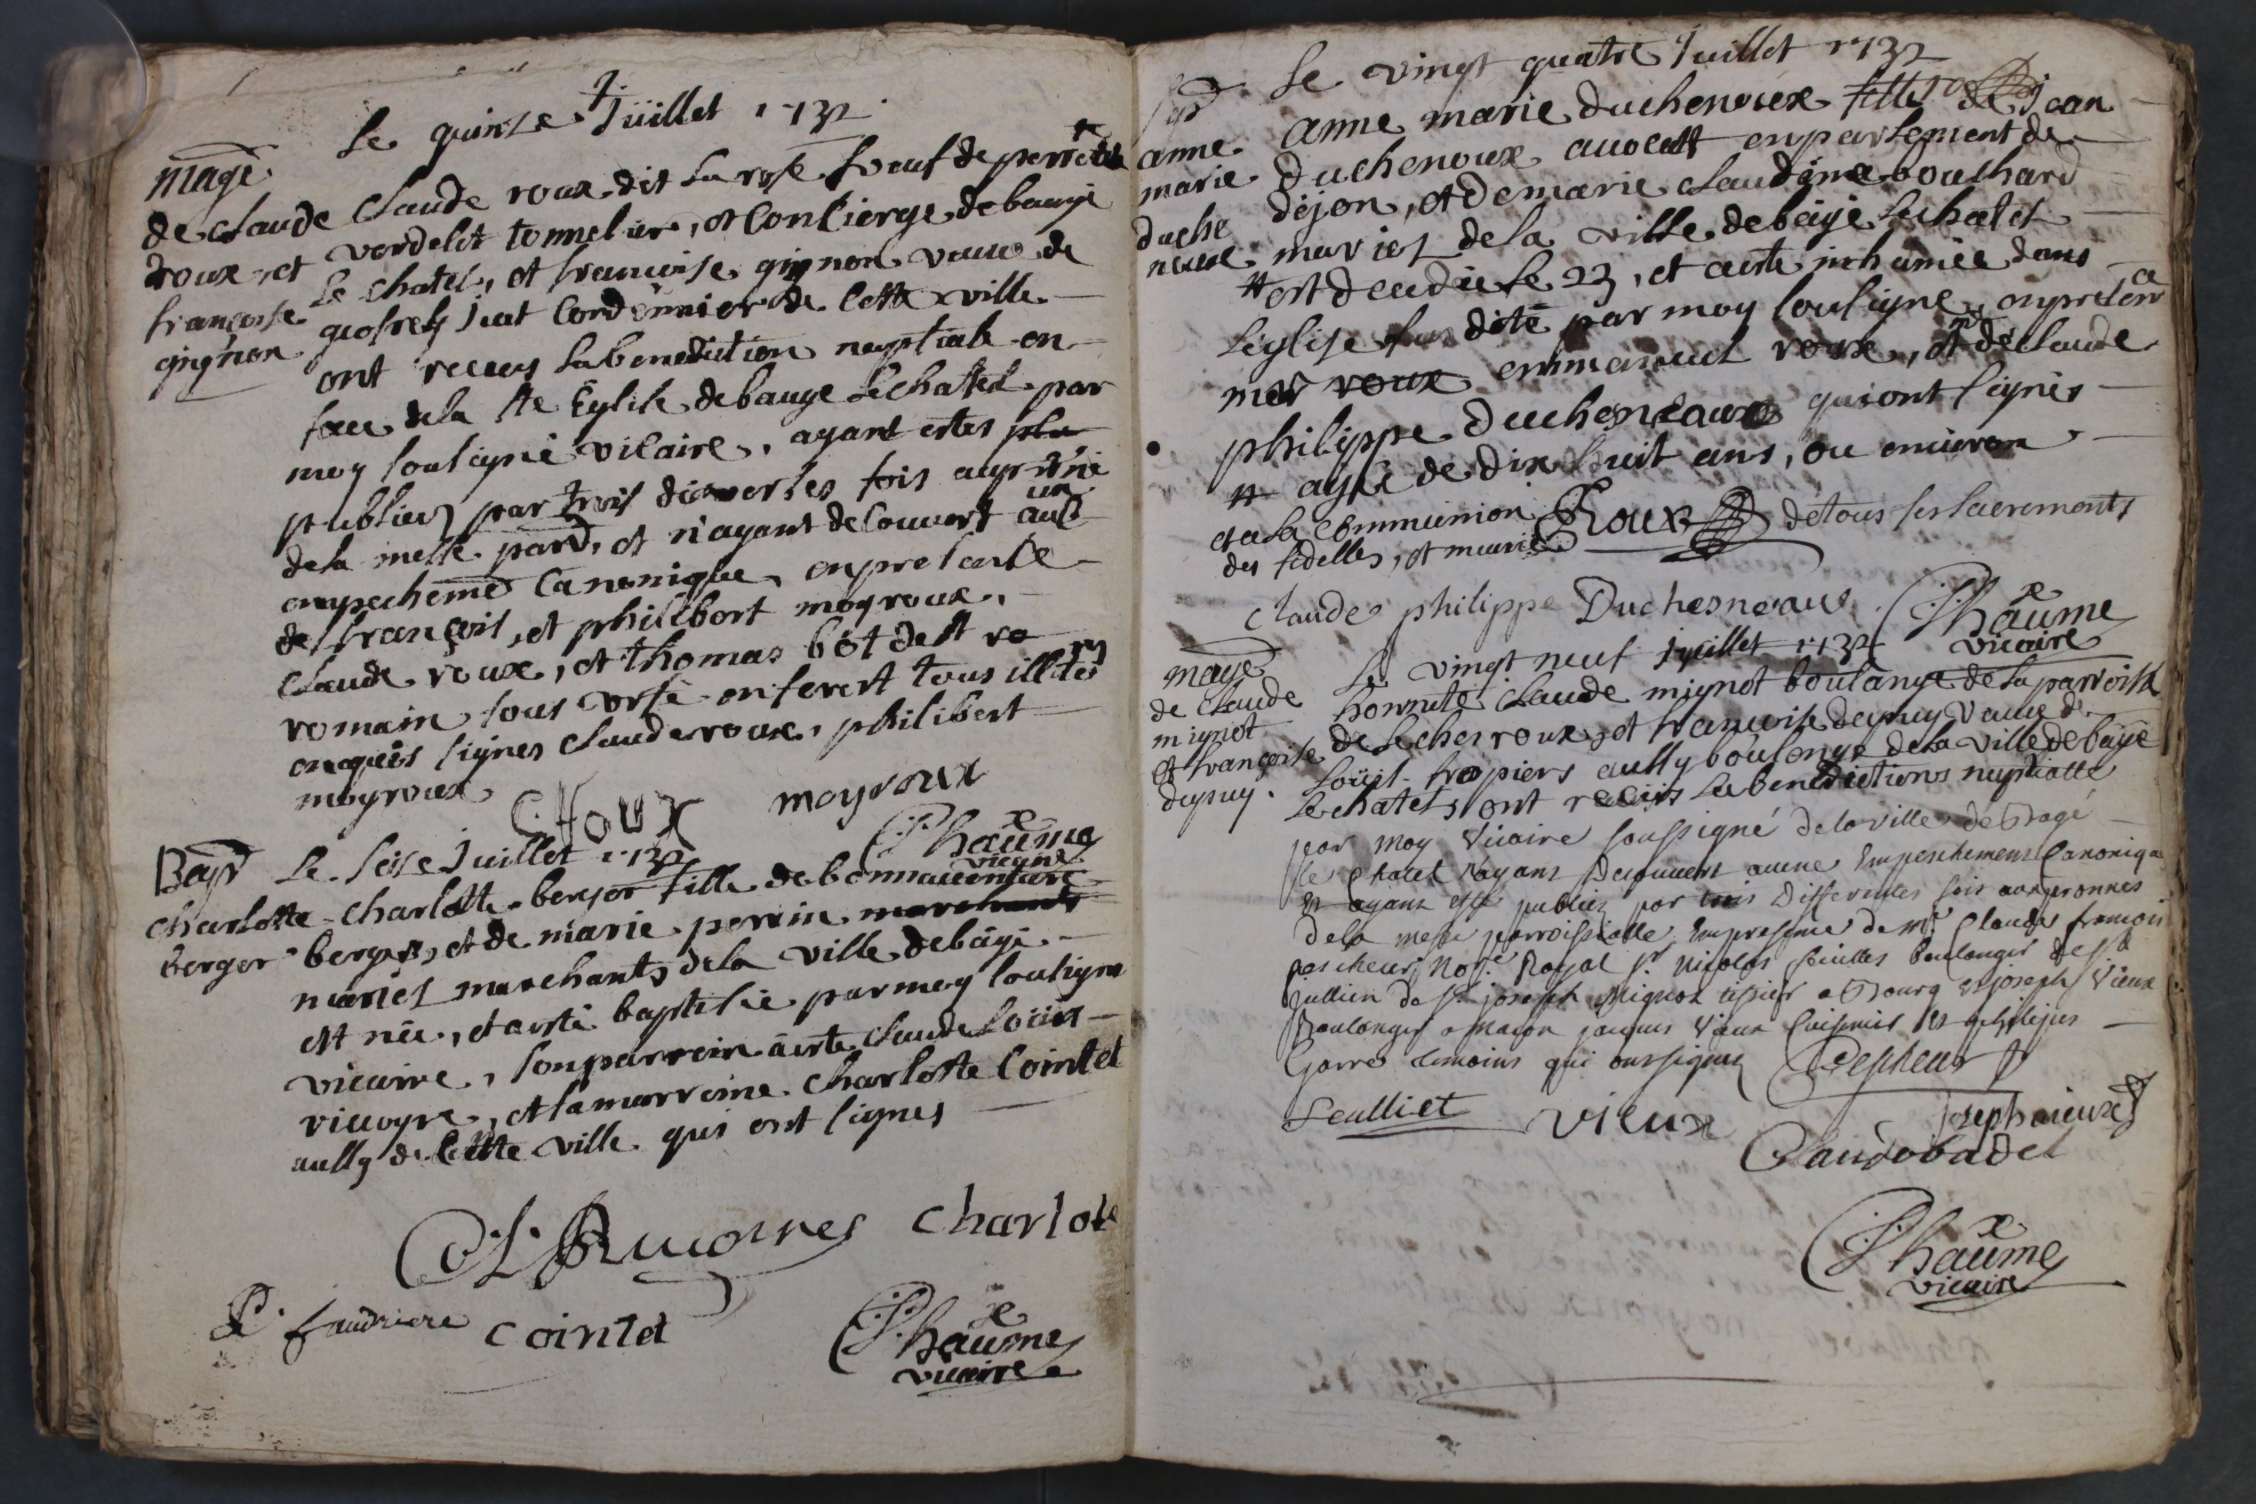 Le quinze Juillet 1732
mage
de claude
roux et
françoise
gignon
Claude roux dit La rose Veuf de perrette
verdelet tonnelier, et Concierge de baugé
Le chatel, et francoise gignon veuve de
Cordonnier de Cette ville
ont receus La benediction nuptiale en
face de la Ste Eglise de baugé Le chatel par
moy soussigné vicaire, ayant estes
publiez par trois diverses fois au prône
de la messe parod, et n'ayant decouvert aucun
empecheme Canonique, en presence
de françois, et philibert moyroux,
Claude roux, et thomas bôt de St ro
romain tous
enquis signes Claude roux, philibert
moyroux
C Roux moyroux
Rhaume
vicaire
Bapt
charlotte
berger
Le seise Juillet 1732
charlotte berger fille de bonnaventure
berger, et de marie perrin marchants
mariés marchants de la ville de bâgé
est née, et a esté baptisée par moy soussigné
vicaire, son parrein a esté Claude Louis
vicoyre, et la marreine Charlotte Cointet
aussy de Cette ville qui ont signes
charlote
faudriere cointet
Rhaume
vicaire
Le vingt quatre Juillet 1732
anne
marie
duche
neuxe
anne marie duchenoux fille de Jean
Duchenoux avocatt en parlement de
dijon, et de marie claudine bouchard
mariés de la ville de bâgé Le chatel
est decedée le 23, et a esté inhumée dans
L'eglise sus dite par moy soussigné, en presence
roux emmanuel roux, et de claude
philippe Duchesneaux qui ont signés
agée de dix huit ans, ou environ
et a la Communion
des fidelles, et munie de tous ses sacrements
Roux
Claude philippe Duchesneaus
Rhaume
vicaire
mage
de claude
mignot
et françoise
depuy
Le vingt neuf Juillet 1732
honnete Claude mignot boulange de la parroisse
de et francoise depuy veuve de
Loüis aussy boulenge de la ville de bâgé
Le chatel, ont receüs La benediction nuptialle
par moy Vicaire soussigné de la ville de Bagé
le Chatel N'ayant Decouvert aucune Empeschement Canonique
Et ayant esté publiez par trois Differentes fois aux pronnes
de la messe parroissialle En presence de mr Claude francois
Royal Sr Nicolas boulanger de St
jullien de Sr joseph Mignot a Bourg joseph Vieux
Boulanger a Macon
temoins qui ont signez
Seulliet vieux
joseph vieux
Claude badel
Rhaume
vicaire